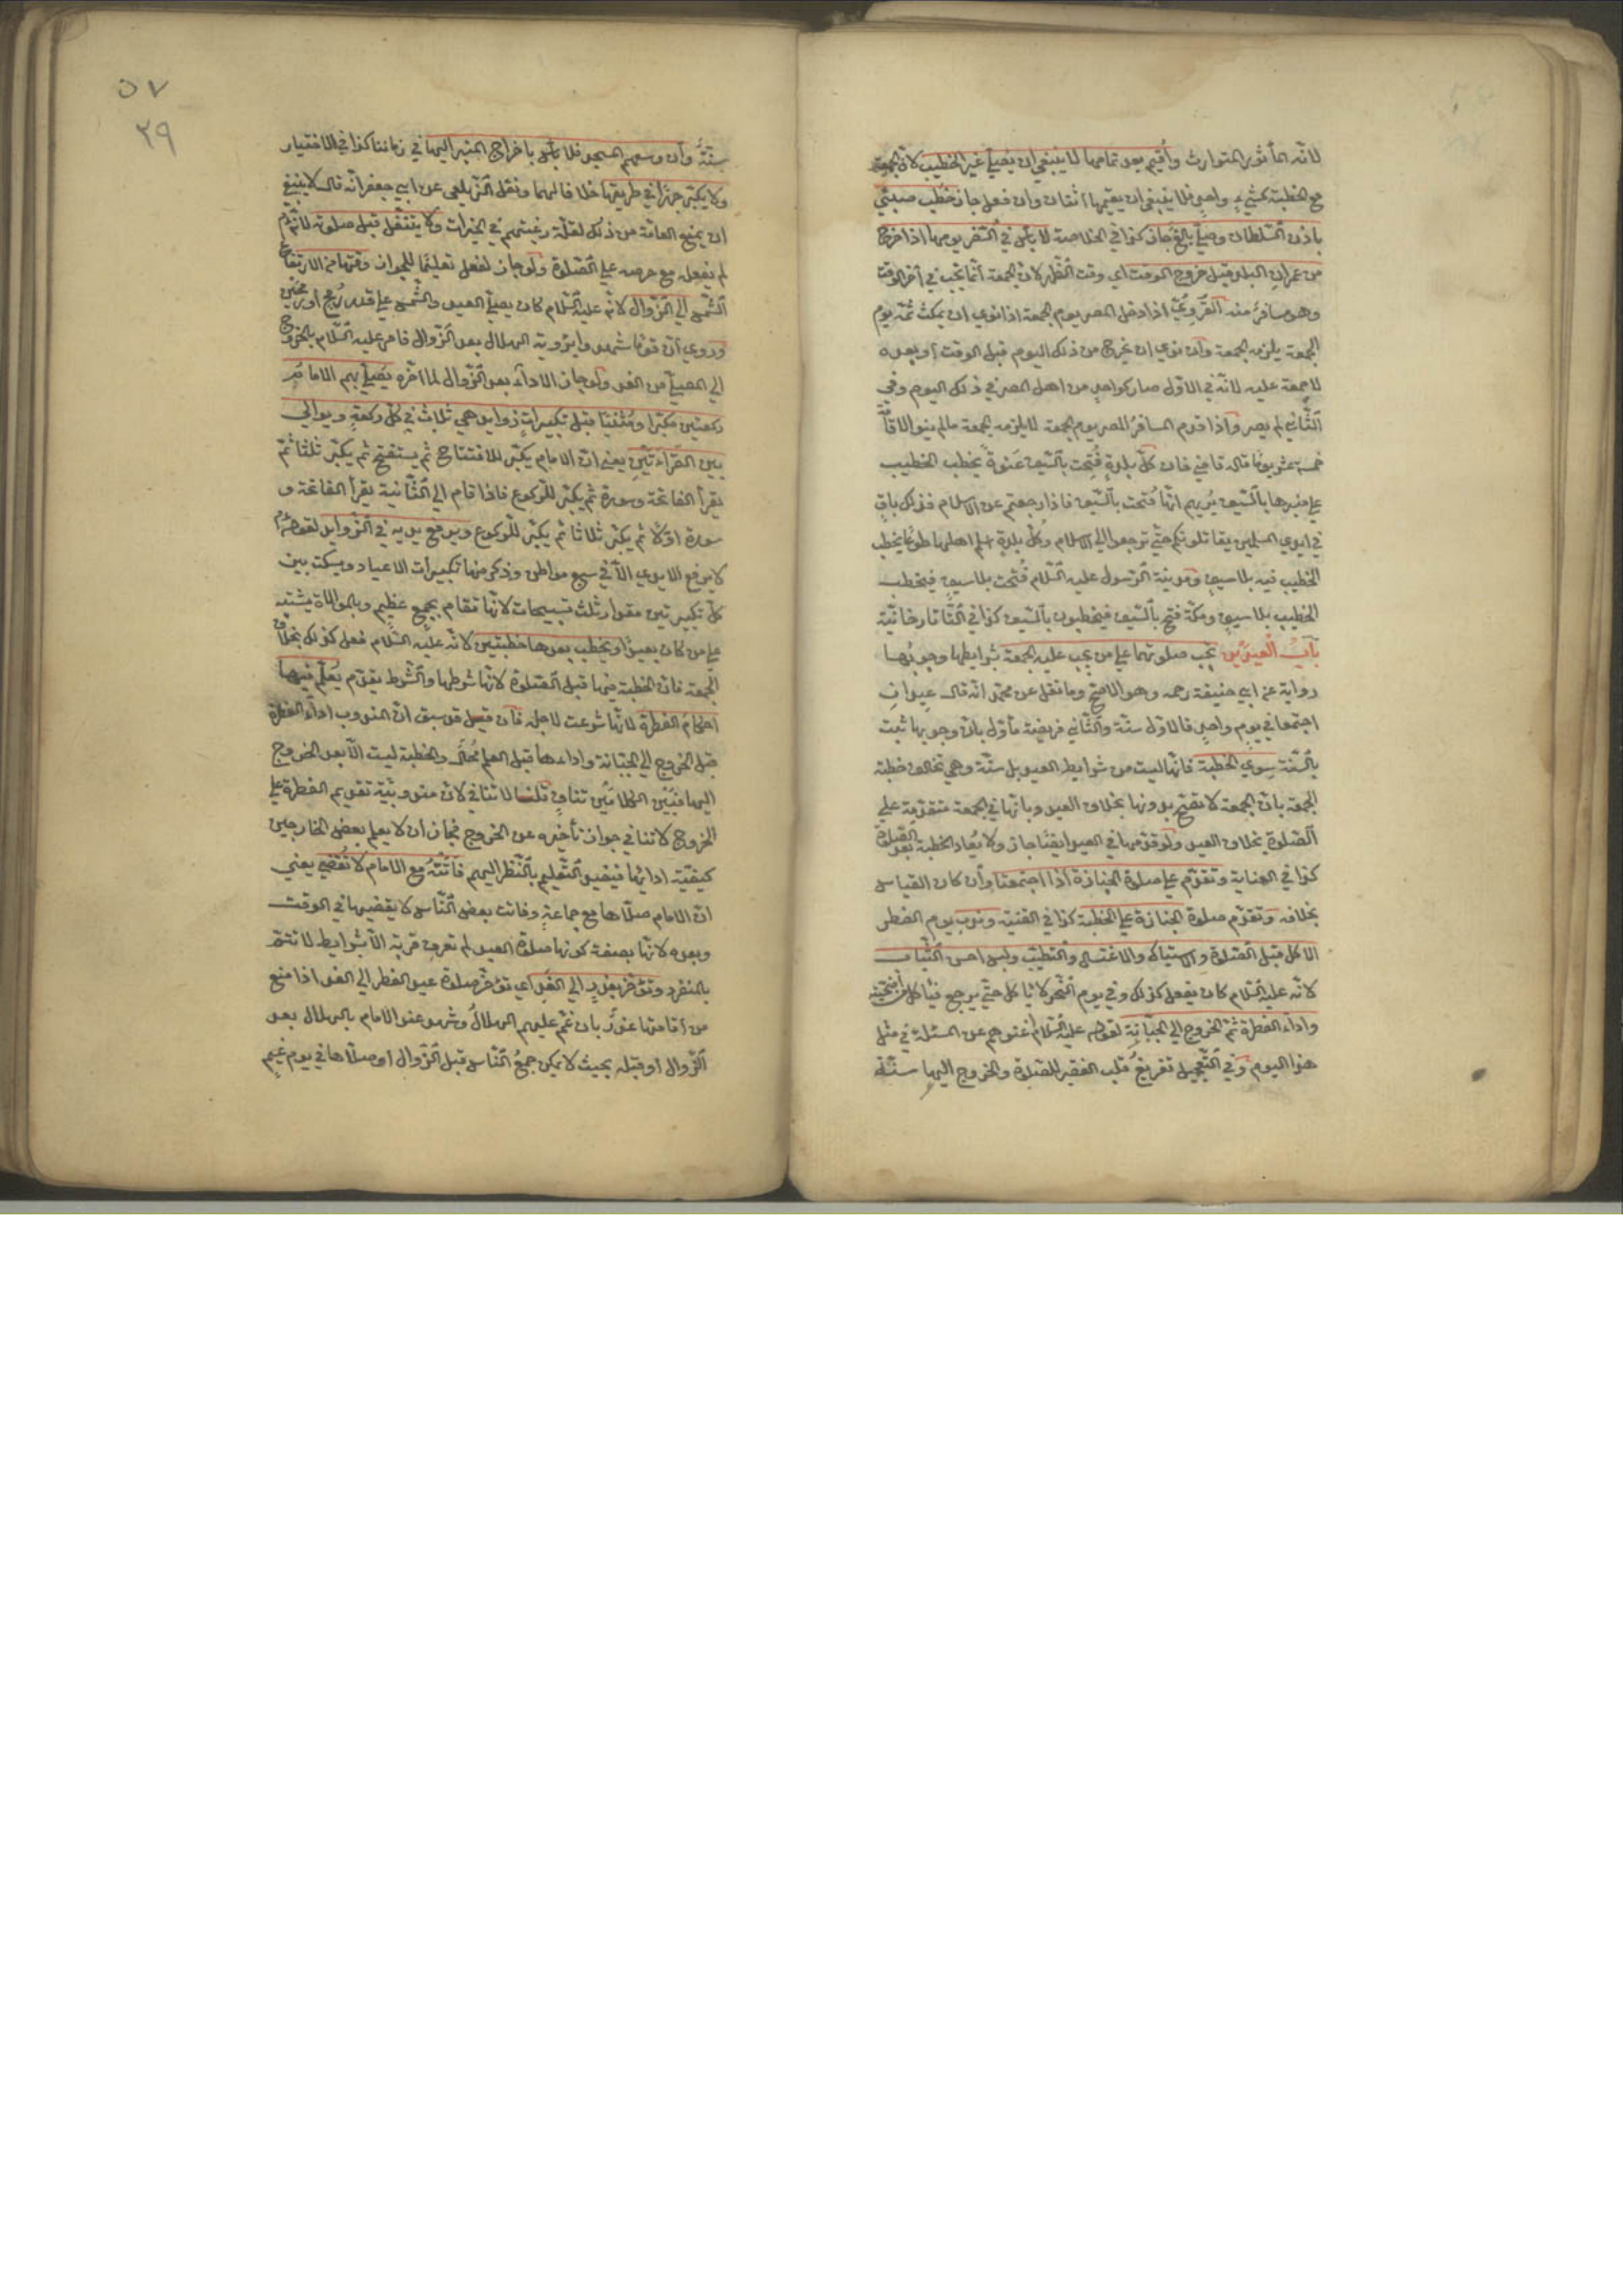 لانّه المأثور المتوارث وأقيم بعد تمامها لا ينبغي ان يُصلّي غير الخطيب لانّ الجمعة
مع الخطبة كشيءٍ واحدٍ فلا ينبغي ان يقيمها اثنان وان فعل جاز خَطب صبيّ
باذن السّلطان وصلّي بالغٌ جاز كذا في الخلاصة لا بأس في السّفر يومها اذا خرج
من عمران البلد قبل خروج الوقت اي وقت الظّهر لانّ الجمعة انّما تجب في آخر الوقت
وهو مسافرٌ منه القَرَويُّ اذا دخل المصر يوم الجمعة اذا نوي ان يمكث ثمّه يوم
الجمعة يلزمه الجمعة وان نوي ان يخرج من ذلك اليوم قبل الوقت او بعده
لا جمعة عليه لانّه في الاوّل صار كواحدٍ من اهل المصر في ذلك اليوم وفي
الثّاني لم يصر واذا قدم المسافرُ المصر يوم الجمعة لا يلزمه الجمعة ما لم ينو الاقامة
خمسة عشر يومًا قال قاضي خان كلّ بلدةٍ فُتِحت بالسّيف عَنوةً يخطب الخطيب
علي منبرها بالسّيف يُريهم انّها فُتحت بالسّيف فاذا رجعتم عن الاسلام فذلك باقٍ
في ايدي المسلمين يقاتلونكم حتّي ترجعوا الي الاسلام وكلّ بلدةٍ اسلم اهلها طوعًا يخطب
الخطيب فيه بلا سيفٍ ومدينة الرّسول عليه السّلام فُتحت بلا سيفٍ فيخطب
الخطيب بلا سيفٍ ومكّة فتح بالسّيف فيخطبون بالسّيف كذا في التّاتارخانيّة
بابُ العيدَين تجب صلوتهما علي من يجب عليه الجمعة بشرايطها وجوبُها
رواية عن ابي حنيفة رحمه وهو الاصحّ وما نقل عن محمّد انّه قال عيدانِ
اجتمعا في يومٍ واحدٍ فالاوّل سنّة والثّاني فريضة مأوّل بانّ وجوبها ثبت
بالسّنّة سِوي الخطبة فانّها ليست من شرايط العيد بل سنّة وهي تخالف خطبة
الجمعة بانّ الجمعة لا تصّح بدونها بخلاف العيد وبانّها في الجمعة متقدّمة علي
الصّلوة بخلاف العيد ولو قدّمها في العيد ايضًا جاز ولا يُعاد الخطبة بعد الصّلوة
كذا في العناية وتقدّم علي صلوة الجنازة اذا اجتمعتا وان كان القياس
بخلافه وتقدّم صلوة الجنازة علي الخطبة كذا في القنية وندب يوم الفطر
الاكل قبل الصّلوة والاستياك والاغتسال والتطيّب ولبس احسن الثّياب
لانّه عليه السّلام كان يفعل كذلك وفي يوم النّحر لا يأكل حتّي يرجع فيأكل من أضحيّته
واداء الفطرة ثمّ الخروج الي الجبّانةِ لقوله عليه السّلام اغنوهم عن المسئلة في مثل
هذا اليوم وفي التّعجيل تفريغُ قلب الفقير للصّلوة والخروج اليها سنّة
٥٧
٢٩
سنّةٌ وان وسعهم المسجد فلا بأس باخراج المنبر اليها في زماننا كذا في الاختيار
ولا يكبّر جهرًا في طريقها خلافا لهما ونقل الزّيلعي عن ابي جعفر انّه قال لا ينبغي
ان يمنع العامّة من ذلك لقلّة رغبتهم في الخيرات ولا يتنفّل قبل صلوته لانّه عم
لم يفعله مع حرصه علي الصّلوة ولو جاز لفعل تعليمًا للجواز وقتها من الارتفاع
الشّمس الي الزّوال لانّه عليه السّلام كان يصلّي العيد والشّمس علي قدر رُمح او رمحَين
وروي انّ قومًا شهدوا برؤية الهلال بعد الزّوال فامر عليه السّلام بالخروج
الي المصلّي من الغد ولو جاز الاداء بعد الزّوال لما اخّره يُصلّي بهم الامامُ
ركعتين مكبّرا ومُثنيًا قبل تكبيراتٍ زوايد هي ثلاثٌ في كلّ ركعةٍ ويوالي
بين القراءَتَين يعني انّ الامام يكبّر للافتتاح ثم يستفتح ثم يكبّر ثلثًا ثمّ
يقرأ الفاتحة وسورة ثم يكبّر للركوع فاذا قام الي الثّانية يقرأ الفاتحة و
سورة اوّلًا ثم يكبّر ثلاثا ثم يكبّر للركوع ويرفع يديه في الزّوايد لقوله عم
لا يرفع الايدي الّا في سبع مواطن وذكر منها تكبيرات الاعياد ويسكت بين
كلّ تكبيرتين مقدار ثلث تسبيحات لانّها تقام بجمعٍ عظيم وبالموالاة يشتبه
علي من كان بعيدًا ويخطب بعدها خطبتين لانّه عليه السّلام فعل كذلك بخلاف
الجمعة فانّ الخطبة فيها قبل الصّلوة لانّها شرطها والشّرط يقدّم يُعلّم فيها
احكامَ الفطرة لانّها شرعت لاجله فان قيل قد سبق انّ المندوب اداء الفطرة
قبل الخروج الي الجبّانة واداءها قبل العلم مُحالٌ والخطبة ليست الّا بعد الخروج
اليها فبَيَن الكلامَين تنافٍ قلنا لا تنافي لانّ مندوبيّة تقديم الفطرة علي
الخروج لا تنافي جواز تأخيره عن الخروج فجاز ان لا يعلم بعض الخارجين
كيفيّة ادائها فيفيد التّعليم بالنّظر اليهم فَاتَتْهُ مع الامام لا تُقضي يعني
انّ الامام صلّاها مع جماعةٍ وفاتت بعض النّاس لا يقضيها في الوقت
وبعده لانّها بصفة كونها صلوة العيد لم تعرف قربة الّا بشرايط لا تتمّ
بالمنفرد وتؤخّر بعذرٍ الي الغد اي تؤخّر صلوة عيد الفطر الي الغد اذا منع
من اقامتها عذرٌ بان غمّ عليهم الهلالُ وشهد عند الامام بالهلال بعد
الزّوال او قبله بحيث لا يمكن جمعُ النّاس قبل الزّوال او صلّاها في يوم غيمٍ